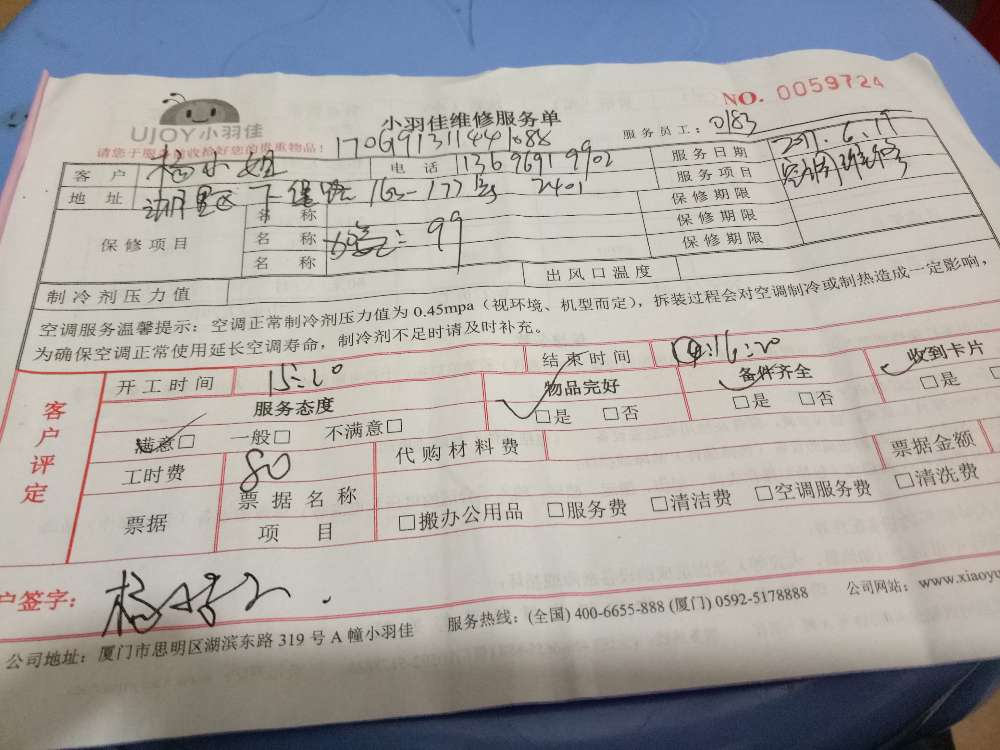 NO. 0059724
UJOY小羽佳
小羽佳维修服务单
服务员工：0183
请您于服务前收拾好您的贵重物品！
170691311441688
客户 杨小姐 电话 13696919902 服务日期 2017.6.19
地址 163-177号 2401 服务项目
保修项目 名称 保修期限
名称 99 保修期限
名称 保修期限
制冷剂压力值 出风口温度
空调服务温馨提示：空调正常制冷剂压力值为 0.45mpa（视环境、机型而定），拆装过程会对空调制冷或制热造成一定影响，
为确保空调正常使用延长空调寿命，制冷剂不足时请及时补充。
客户评定
开工时间 15:10 结束时间 16:20
服务态度 物品完好 备件齐全 收到卡片
满意□ 一般□ 不满意□ □是 □否 □是 □否 □是 □
工时费 80 代购材料费 票据金额
票据 票据名称
项目 □搬办公用品 □服务费 □清洁费 □空调服务费 □清洗费
户签字：
公司地址：厦门市思明区湖滨东路 319 号 A 幢小羽佳 服务热线：(全国) 400-6655-888 (厦门) 0592-5178888 公司网站：www.xiaoyu